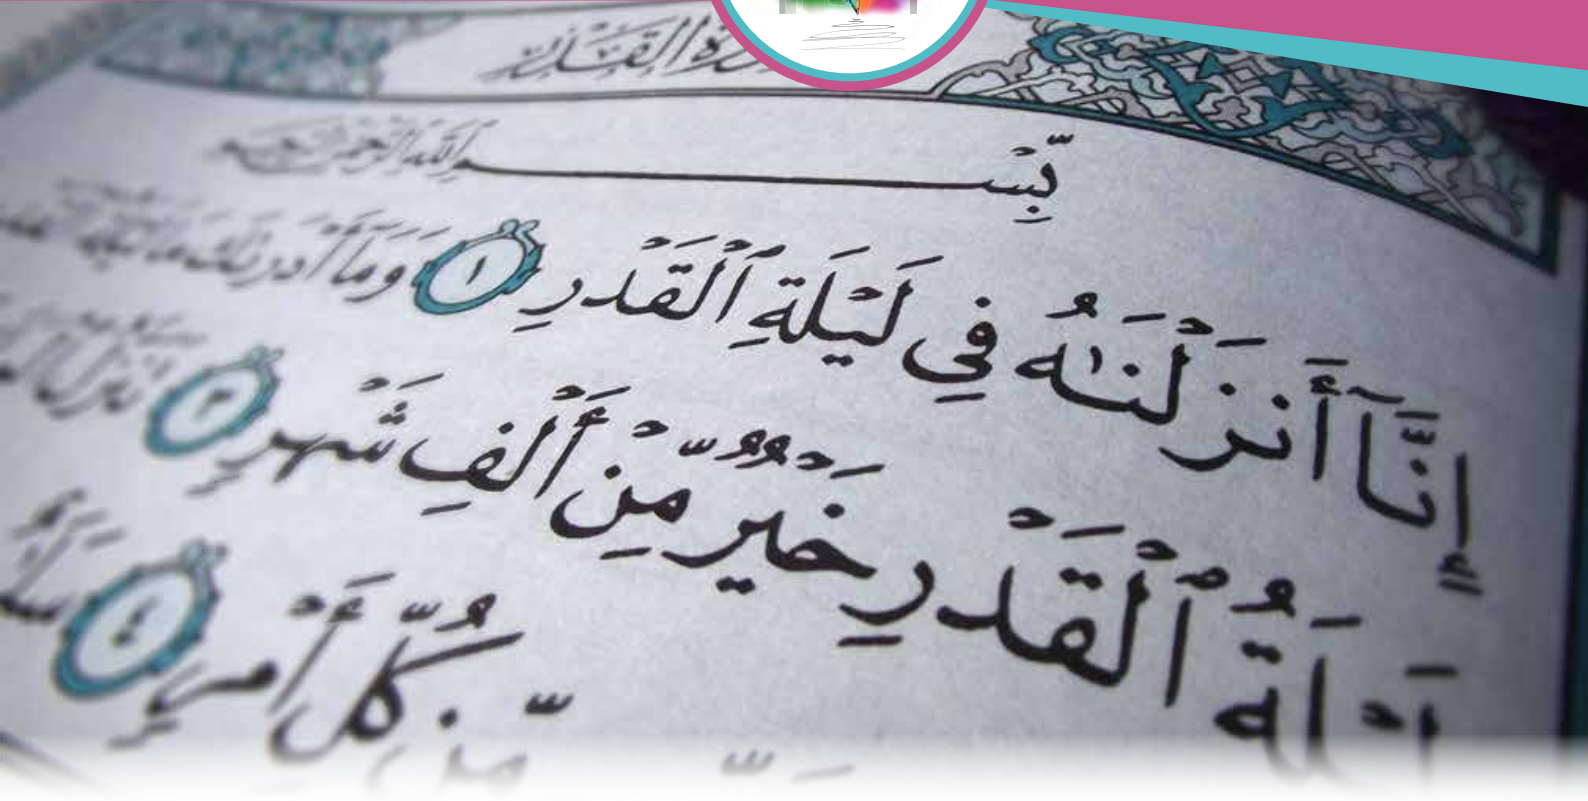 سورة القدر
بِّسْمِ ٱللَّهِ ٱلرَّحْمَٰنِ ٱلرَّحِيمِ
إِنَّآ أَنزَلْنَٰهُ فِى لَيْلَةِ ٱلْقَدْرِ ١ وَمَآ أَدْرَىٰكَ مَا لَيْلَةُ
لَيْلَةُ ٱلْقَدْرِ خَيْرٌ مِّنْ أَلْفِ شَهْرٍ ٣ تَنَزَّلُ
مِّن كُلِّ أَمْرٍ ٤